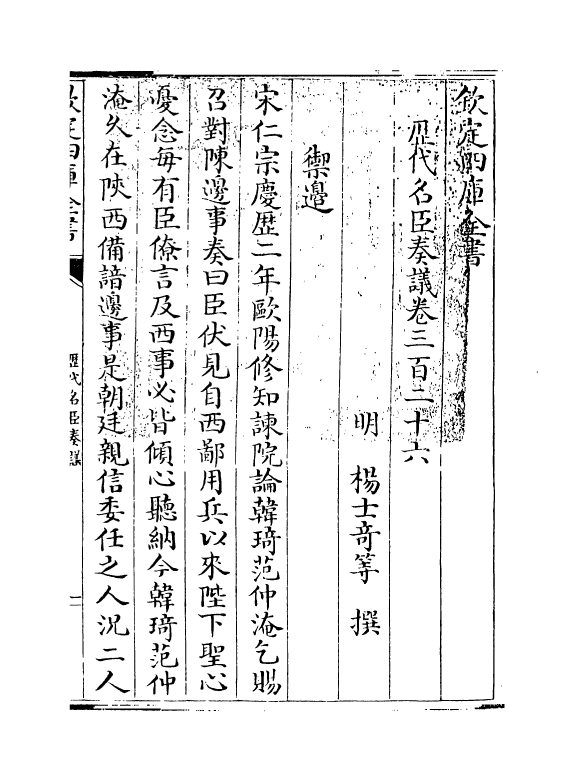 欽定四庫全書
歴代名臣奏議卷三百二十六
明　楊士竒等　撰
禦邉
宋仁宗慶歴二年歐陽修知諫院論韓琦范仲淹乞賜
召對陳邉事奏曰臣伏見自西鄙用兵以來陛下聖心
憂念毎有臣僚言及西事必皆傾心聽納今韓琦范仲
淹久在陜西備諳邉事是朝廷親信委任之人況二人
欽定四庫全書
歴代名臣奏議
一